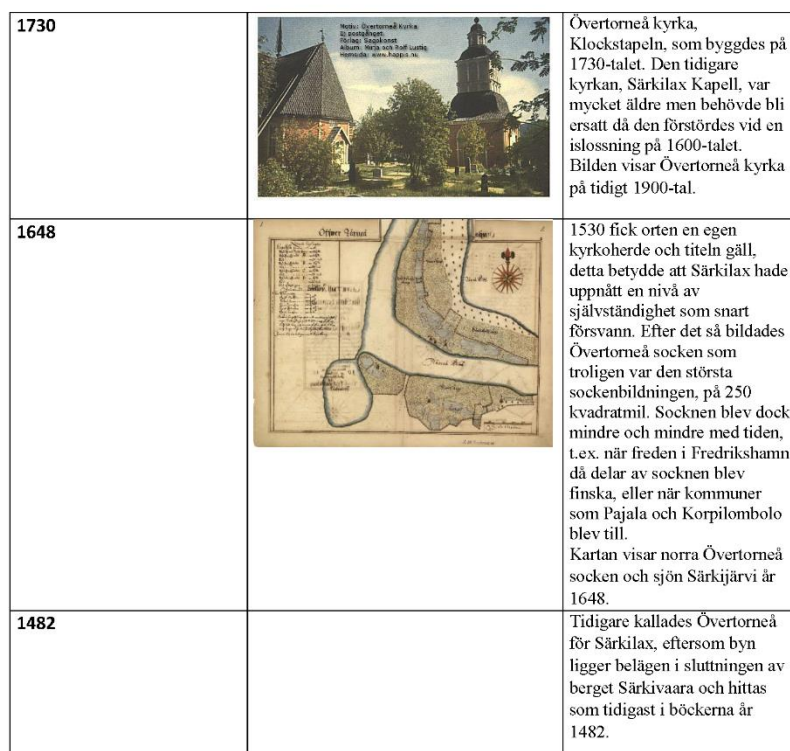 1730
Motiv: Övertorneå Kyrka.
Ej postgånget.
Förlag: Sagokonst
Album: Mirja och Rolf Lustig
Hemsida: www.happis.nu
Övertorneå kyrka,
Klockstapeln, som byggdes på
1730-talet. Den tidigare
kyrkan, Särkilax Kapell, var
mycket äldre men behövde bli
ersatt då den förstördes vid en
islossning på 1600-talet.
Bilden visar Övertorneå kyrka
på tidigt 1900-tal.
1648
1530 fick orten en egen
kyrkoherde och titeln gäll,
detta betydde att Särkilax hade
uppnått en nivå av
självständighet som snart
försvann. Efter det så bildades
Övertorneå socken som
troligen var den största
sockenbildningen, på 250
kvadratmil. Socknen blev dock
mindre och mindre med tiden,
t.ex. när freden i Fredrikshamn
då delar av socknen blev
finska, eller när kommuner
som Pajala och Korpilombolo
blev till.
Kartan visar norra Övertorneå
socken och sjön Särkijärvi år
1648.
1482
Tidigare kallades Övertorneå
för Särkilax, eftersom byn
ligger belägen i sluttningen av
berget Särkivaara och hittas
som tidigast i böckerna år
1482.